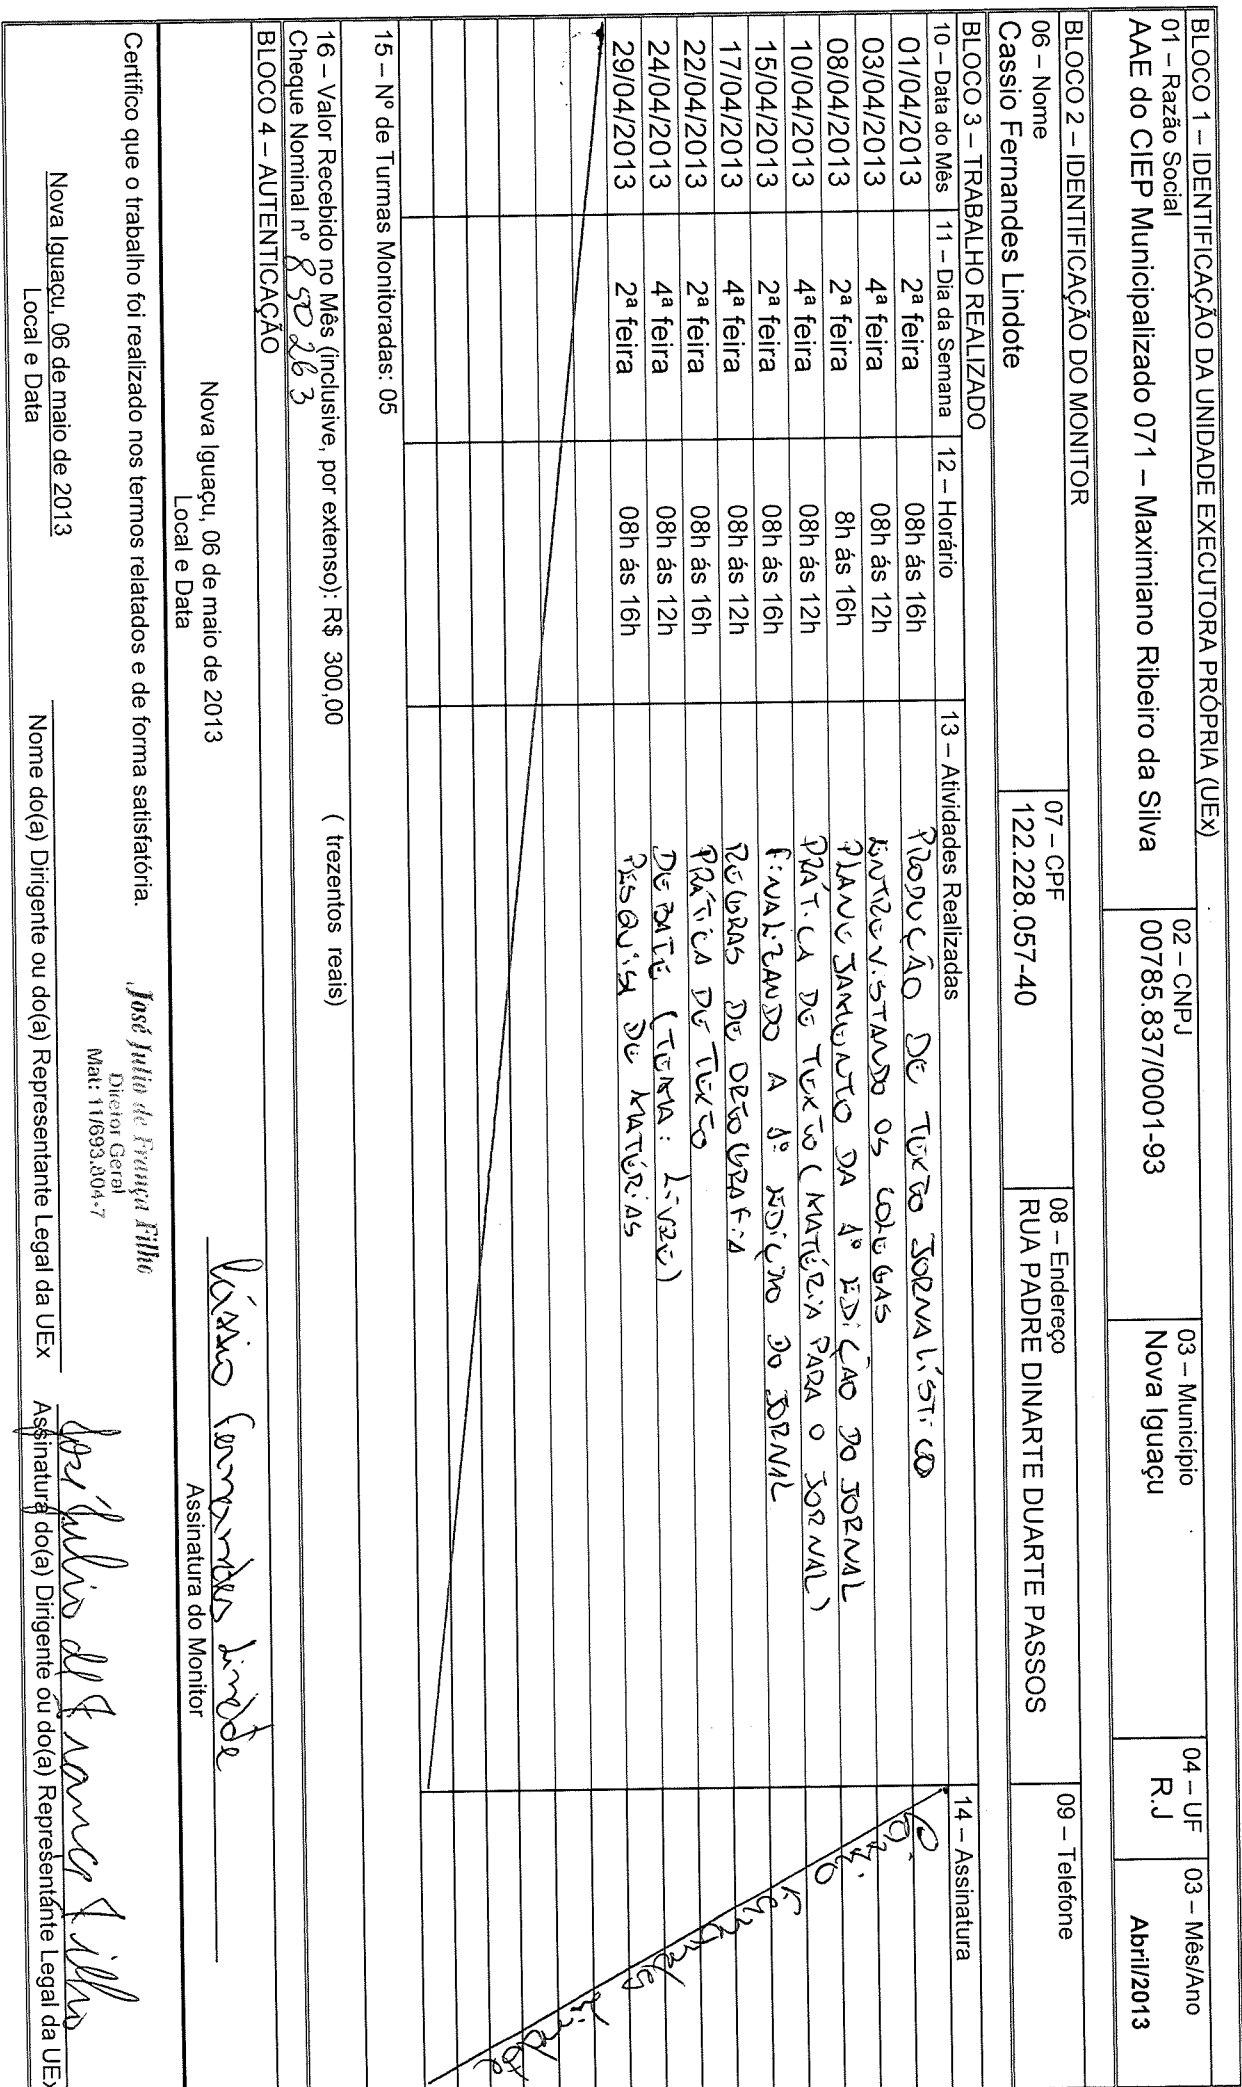 BLOCO 1 – IDENTIFICAÇÃO DA UNIDADE EXECUTORA PRÓPRIA (UEx)
01 – Razão Social
AAE do CIEP Municipalizado 071 – Maximiano Ribeiro da Silva
02 – CNPJ
00785.837/0001-93
03 – Município
Nova Iguaçu
04 – UF
R.J
03 – Mês/Ano
Abril/2013
BLOCO 2 – IDENTIFICAÇÃO DO MONITOR
06 – Nome
Cassio Fernandes Lindote
07 – CPF
122.228.057-40
08 – Endereço
RUA PADRE DINARTE DUARTE PASSOS
09 – Telefone
BLOCO 3 – TRABALHO REALIZADO
10 – Data do Mês 11 – Dia da Semana 12 – Horário 13 – Atividades Realizadas 14 – Assinatura
01/04/2013 2ª feira 08h ás 16h PRODUÇÃO DE TEXTO JORNALÍSTICO
03/04/2013 4ª feira 08h ás 12h ENTREVISTANDO OS COLEGAS
08/04/2013 2ª feira 8h ás 16h PLANEJAMENTO DA 1º EDIÇÃO DO JORNAL
10/04/2013 4ª feira 08h ás 12h PRÁTICA DE TEXTO (MATÉRIA PARA O JORNAL)
15/04/2013 2ª feira 08h ás 16h FINALIZANDO A 1º EDIÇÃO DO JORNAL
17/04/2013 4ª feira 08h ás 12h REGRAS DE ORTOGRAFIA
22/04/2013 2ª feira 08h ás 16h PRÁTICA DE TEXTO
24/04/2013 4ª feira 08h ás 12h DEBATE (TEMA: LIVRE)
29/04/2013 2ª feira 08h ás 16h PESQUISA DE MATÉRIAS
Cássio Fernandes Lindote
15 – Nº de Turmas Monitoradas: 05
16 – Valor Recebido no Mês (inclusive, por extenso): R$ 300,00 ( trezentos reais)
Cheque Nominal nº 850263
BLOCO 4 – AUTENTICAÇÃO
Nova Iguaçu, 06 de maio de 2013
Local e Data
Cássio Fernandes Lindote
Assinatura do Monitor
Certifico que o trabalho foi realizado nos termos relatados e de forma satisfatória.
José Julio de França Filho
Diretor Geral
Mat: 11/693.804-7
José Julio de França Filho
Nova Iguaçu, 06 de maio de 2013
Local e Data
Nome do(a) Dirigente ou do(a) Representante Legal da UEx
Assinatura do(a) Dirigente ou do(a) Representante Legal da UEx